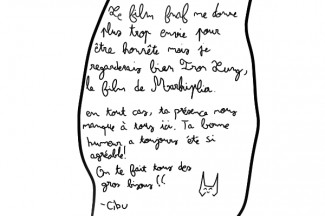 Le film fnaf me donne
plus trop envie pour
être honnête mais je
regarderais bien Iron Lung,
le film de Markiplia.
en tout cas, ta présence nous
manque à tous ici. Ta bonne
humeur a toujours été si
agréable!
On te fait tous des
gros bisous!!
-Cibu